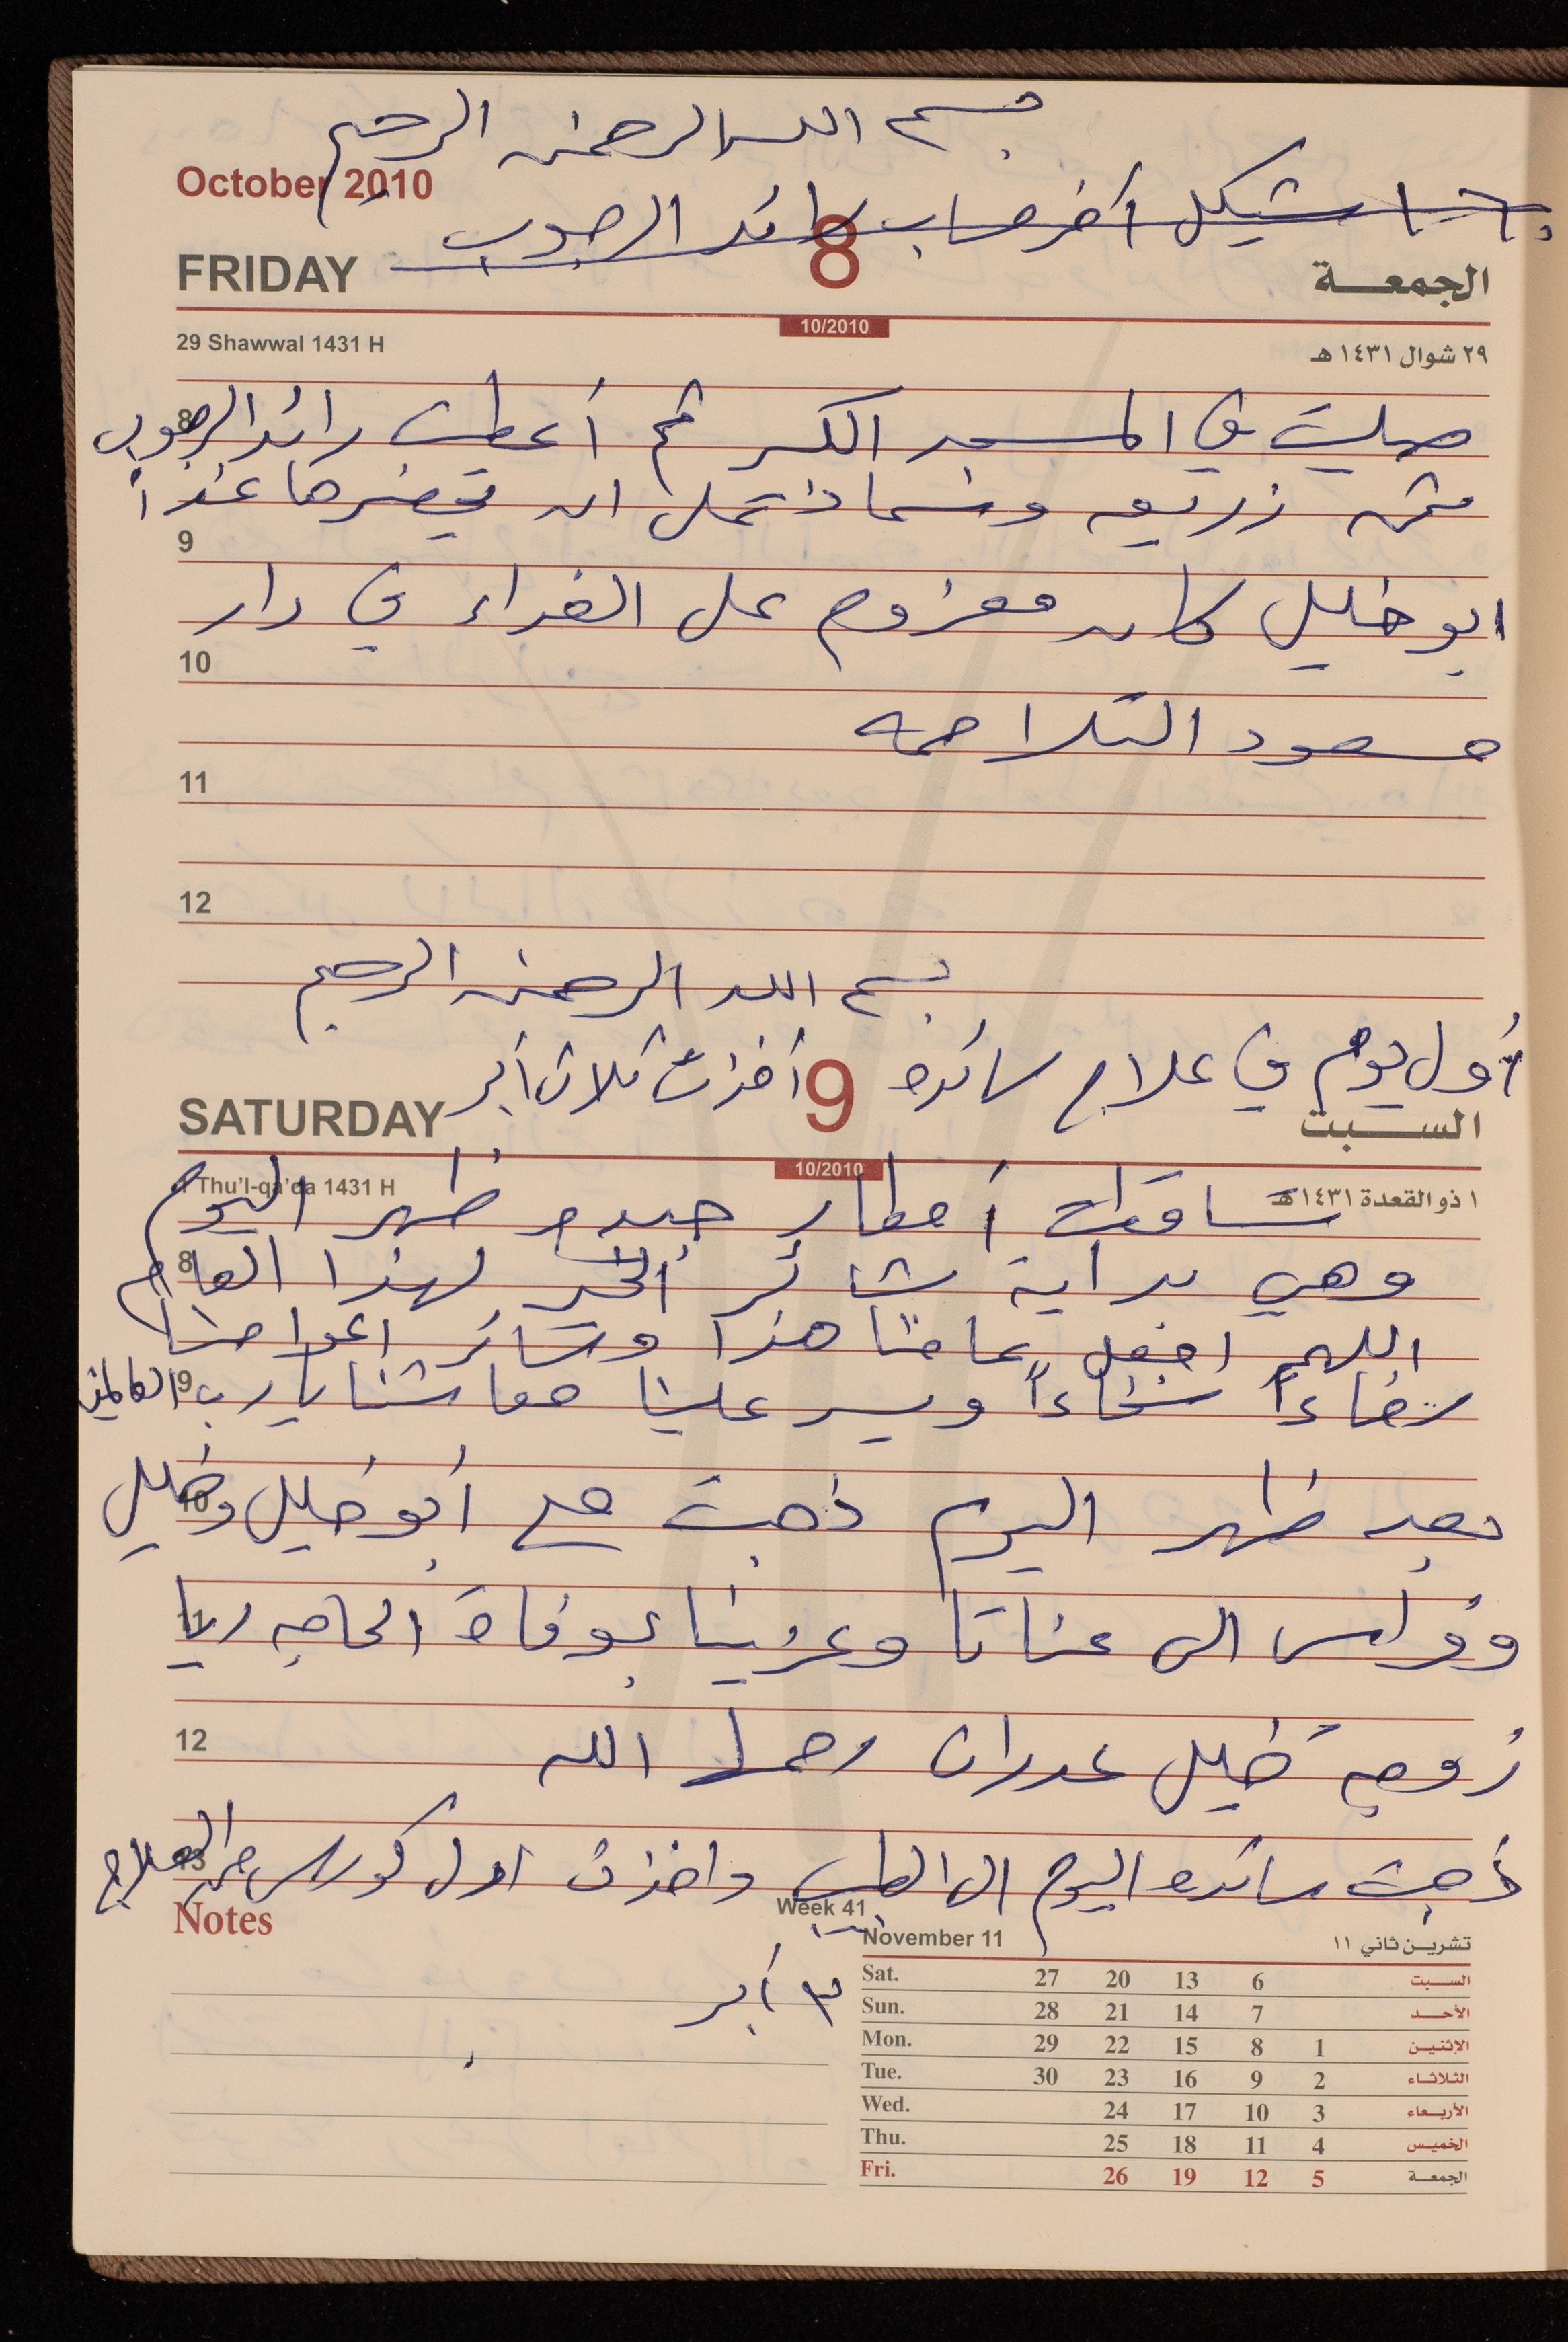 بسم الله الرحمن الرحيم
October 2010
شيكل أخر حساب رائد الرجوب
FRIDAY 8 الجمعة
10/2010
29 Shawwal 1431 H ٢٩ شوال ١٤٣١ هـ
صليت في المسجد الكبير ثم أعطيت رائد الرجوب
8
ثمن زريعه وسماد على ان يحضرها غداً
9
ابو خليل كان معزوم على الغداء في دار
10
مسعود التلاحمه
11
12
بسم الله الرحمن الرحيم
أول يوم في علاج سائده أخذت ثلاث أبر
SATURDAY 9 السبت
10/2010
1 Thu'l-qa'da 1431 H ١ ذو القعدة ١٤٣١ هـ
تساقطت أمطار جيده ظهر اليوم
8
وهي بداية بشائر الخير لهذا العام
اللهم اجعل عامنا هذا وسائر اعوامنا
9
رخاءاً سخاءاً ويسر علينا معاشنا يا رب العالمين
بعد ظهر اليوم ذهبت مع أبو خليل وخليل
10
وفراس الى عناتا وعزينا بوفاة الحاجه ريا
11
زوجة خليل عدران رحمها الله
12
ذهبت سائده اليوم الى الطبيب واخذت اول كورس من العلاج
13
Notes
Week 41
٣ أبر
November 11 تشرين ثاني ١١
Sat. 27 20 13 6 السبت
Sun. 28 21 14 7 الأحد
Mon. 29 22 15 8 1 الإثنين
Tue. 30 23 16 9 2 الثلاثاء
Wed. 24 17 10 3 الأربعاء
Thu. 25 18 11 4 الخميس
Fri. 26 19 12 5 الجمعة